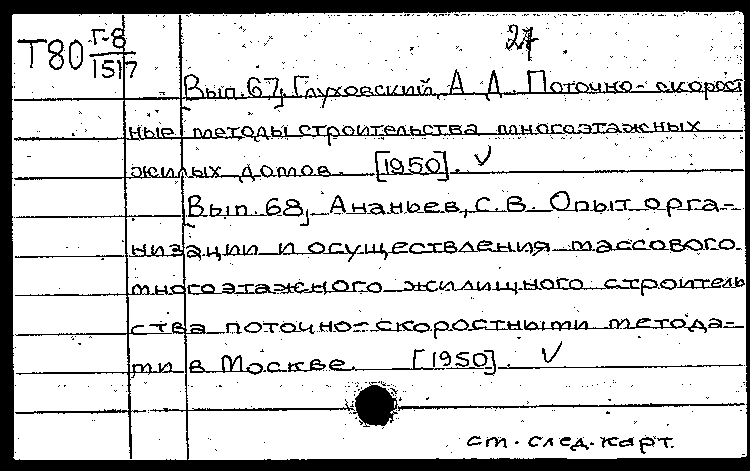 Т80 Г-8
1517
27
Вып.67, Глуховский, А Д. Поточно-скорост
ные методы строительства многоэтажных
жилых домов. [1950]. V
Вып.68, Ананьев, С.В. Опыт орга-
низации и осуществления массового
многоэтажного жилищного строитель
ства поточно-скоростными метода-
ми в Москве. [1950]. V
см. след. карт.